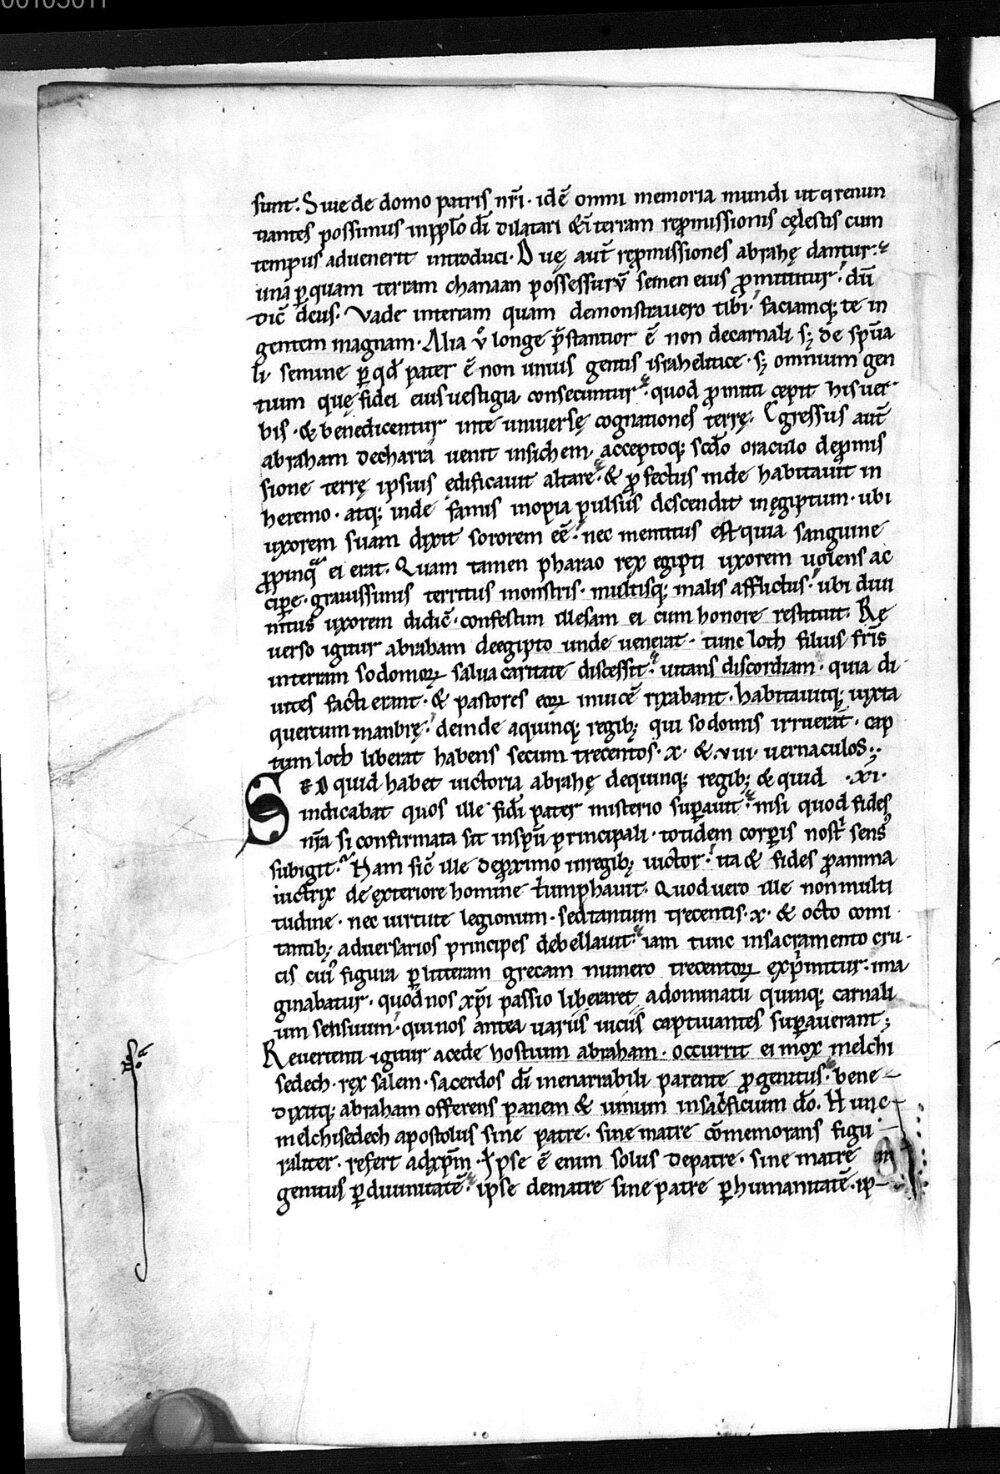 00105011
sunt. Siue de domo patris nr̄i · idē omni memoria mundi ut ei renun
tiantes possimus in pp̄lo dī dilatari & ī terram rep̄missionis cęlestis cum
tempus aduenerit introduci. Duę aut̄ rep̄missiones abrahę dantur ·
una ꝑ quam terram chanaan possessurū semen eius ꝓmittitur · dū
dic̄ deus. Vade in terram quam demonstrauero tibi · faciamq; te in
gentem magnam. Alia ů longe p̄stantior ē non de carnali s; de sp̄ua
li semine ꝑ qd̄ pater ē non unius gentis israhelitice · s; omnium gen
tium quę fidei eius uestigia consecuntur · quod ꝓmitti cepit his uer
bis · & benedicentur in te uniuersę cognationes terrę. Egressus aut̄
abraham de charrā uenit in sichem · acceptoq; scd̄o oraculo de ꝓmis
sione terrę ipsius ędificauit altare · & ꝓfectus inde habitauit in
heremo · atq; inde famis inopia pulsus descendit in ęgiptum · ubi
uxorem suam dixit sororem eē · nec mentitus est quia sanguine
ꝓpinqᵃ ei erat. Quam tamen pharao rex egipti uxorem uolens ac
ciꝑe · grauissimis territus monstris · multisq; malis afflictus · ubi diui
nitus uxorem didic̄ · confestim illesam ei cum honore restituit. Re
uerso igitur abraham de egipto unde uenerat · tunc loth filius fr̄is
in terram sodomoꝝ salua caritate discessit · uitans discordiam · quia di
uites facti erant · & pastores eoꝝ inuicē rixabant · habitauitq; iuxta
quercum manbrę · deinde a quinq; regib; qui sodomis irruerāt · cap
tum loth liberat habens secum trecentos · x · & · viii uernaculos ;
SED quid habet uictoria abrahę de quinq; regib; & quid · xi ·
indicabat quos ille fidi pater misterio suꝑauit · nisi quod fides
nr̄a si confirmata sit in sp̄u principali · totidem corꝑis nostⁱ sensˢ
subigit. Nam sic̄ ille de ꝓximo in regib; uictor · ita & fides ꝑ anima
uictrix de exteriore homine tⁱumphauit. Quod uero ille non multi
tudine · nec uirtute legionum · sed tantum trecentis · x · & octo comi
tantib; aduersarios principes debellauit · iam tunc in sacramento cru
cis cui᷒ figura ꝑ litteram grecam numero trecentoꝝ exp̄mitur · ima
ginabatur · quod nos xp̄i passio liberaret a dominatu quinq; carnali
um sensuum · qui nos antea uariis uiciis captiuantes suꝑauerant ;
Reuertenti igitur a cede hostium abraham · occurrit ei mox melchi
sedech · rex salem · sacerdos dī inenarrabili parente ꝓgenitus · bene
dixitq; abraham offerens panem & uinum in sacⁱficium dō. Hunc
melchisedech apostolus sine patre · sine matre cōmemorans figu
raliter · refert ad xp̄m · Ipse ē enim solus de patre · sine matre
genitus ꝑ diuinitatē · ipse de matre sine patre ꝑ humanitatē · ip